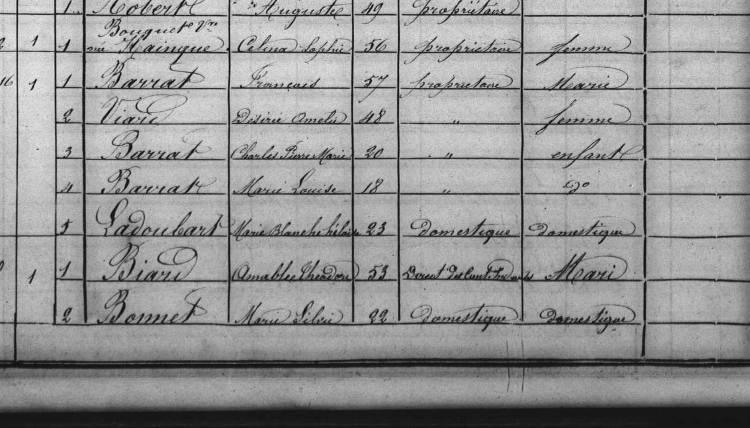 1 Robert Auguste 49 propriétaire
Bouquet Vve
2 1 1 née Mainque Celina Sophie 56 propriétaire femme
16 1 1 Barrat François 57 propriétaire Marie
2 Viard Désirée Amelie 48 " femme
3 Barrat Charles Pierre Marie 20 " enfant
4 Barrat Marie Louise 18 " do
5 Ladoubart Marie Blanche 23 domestique domestique
1 1 Biard Amable Théodore 53 Direct des Cont Mari
2 Bonnet Marie Silvie 22 domestique domestique